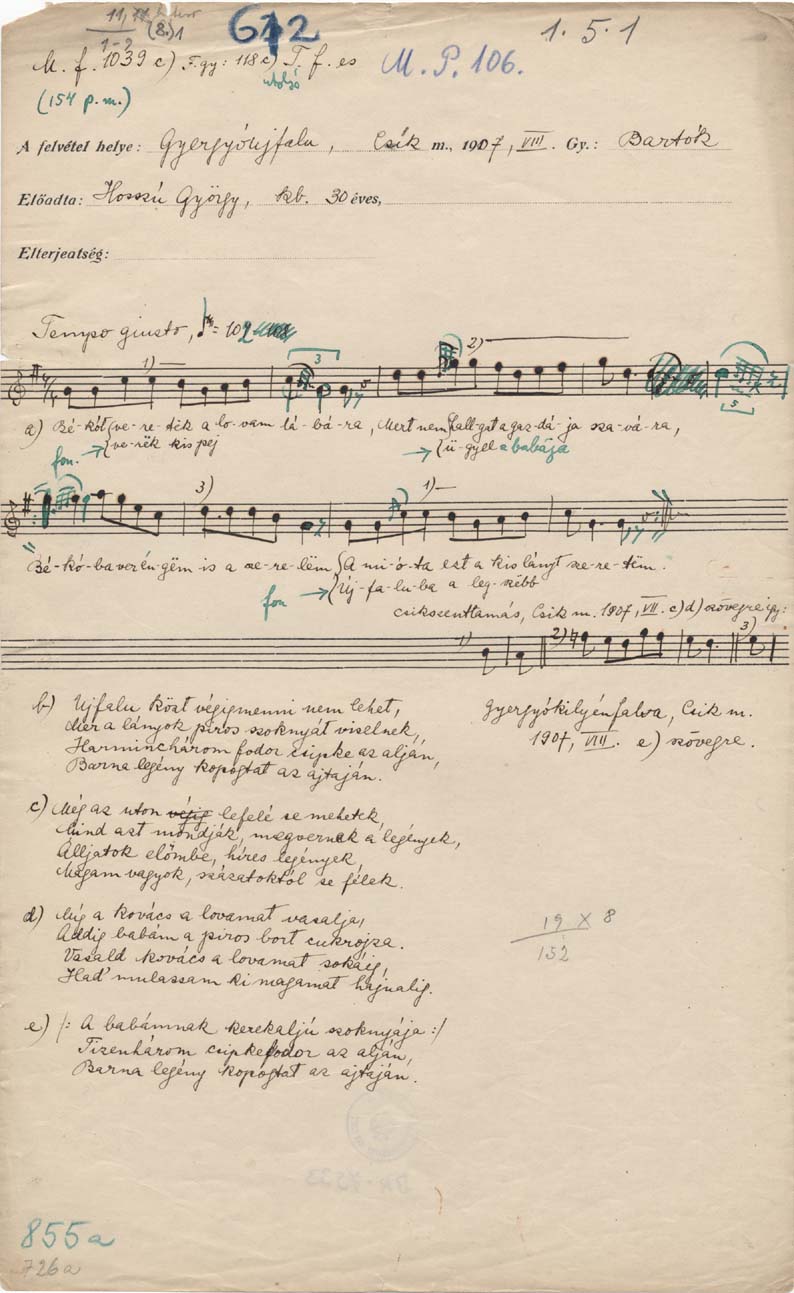 612
1. 5. 1
(2.)1
1-2
M. f. 1039 c) F. gy: 118 c) T. f. es
utolsó
M. P. 106.
(154 p. m.)
A felvétel helye: Gyergyóujfalu, Csík m., 1907, VIII. Gy.: Bartók
Előadta: Hosszú György, kb. 30 éves,
Elterjedtség:
Tempo giusto, = 102
1) 3 2)
5
a) Bé-kót ve-re-ték a lo-vam lá-bá-ra, Mert nem hall-gat a gaz-dá-ja sza-vá-ra,
fon. → ve-rëk kis pej → ü-gyel a babája
3) 1)
Bé-kó-ba ver én-gëm is a sze-re-lëm A mi-ó-ta ezt a kis lányt sze-re-tëm.
fon → Új-fa-lu-ba a leg-szëbb
csikszenttamás, Csik m. 1907, VII. c) d) szövegre így:
1) 2) 3)
b) Ujfalu közt végigmenni nem lehet,
Mer a lányok piros szoknyát viselnek,
Harminchárom fodor csipke az alján,
Barna legény kopogtat az ajtaján.
Gyergyókilyénfalva, Csik m.
1907, VIII. e) szövegre.
c) Még az uton végig lefelé se mehetek,
Mind azt mondják, megvernek a legények,
Álljatok előmbe, híres legények,
Magam vagyok, százatoktól se félek.
d) Míg a kovács a lovamat vasalja,
Addig babám a piros bort cukrojza.
Vasald kovács a lovamat sokáig,
Had' mulassam ki magamat hajnalig.
19 X 8
152
e) /: A babámnak kerekaljú szoknyája :/
Tizenhárom csipkefodor az alján,
Barna legény kopogtat az ajtaján.
855a
726a